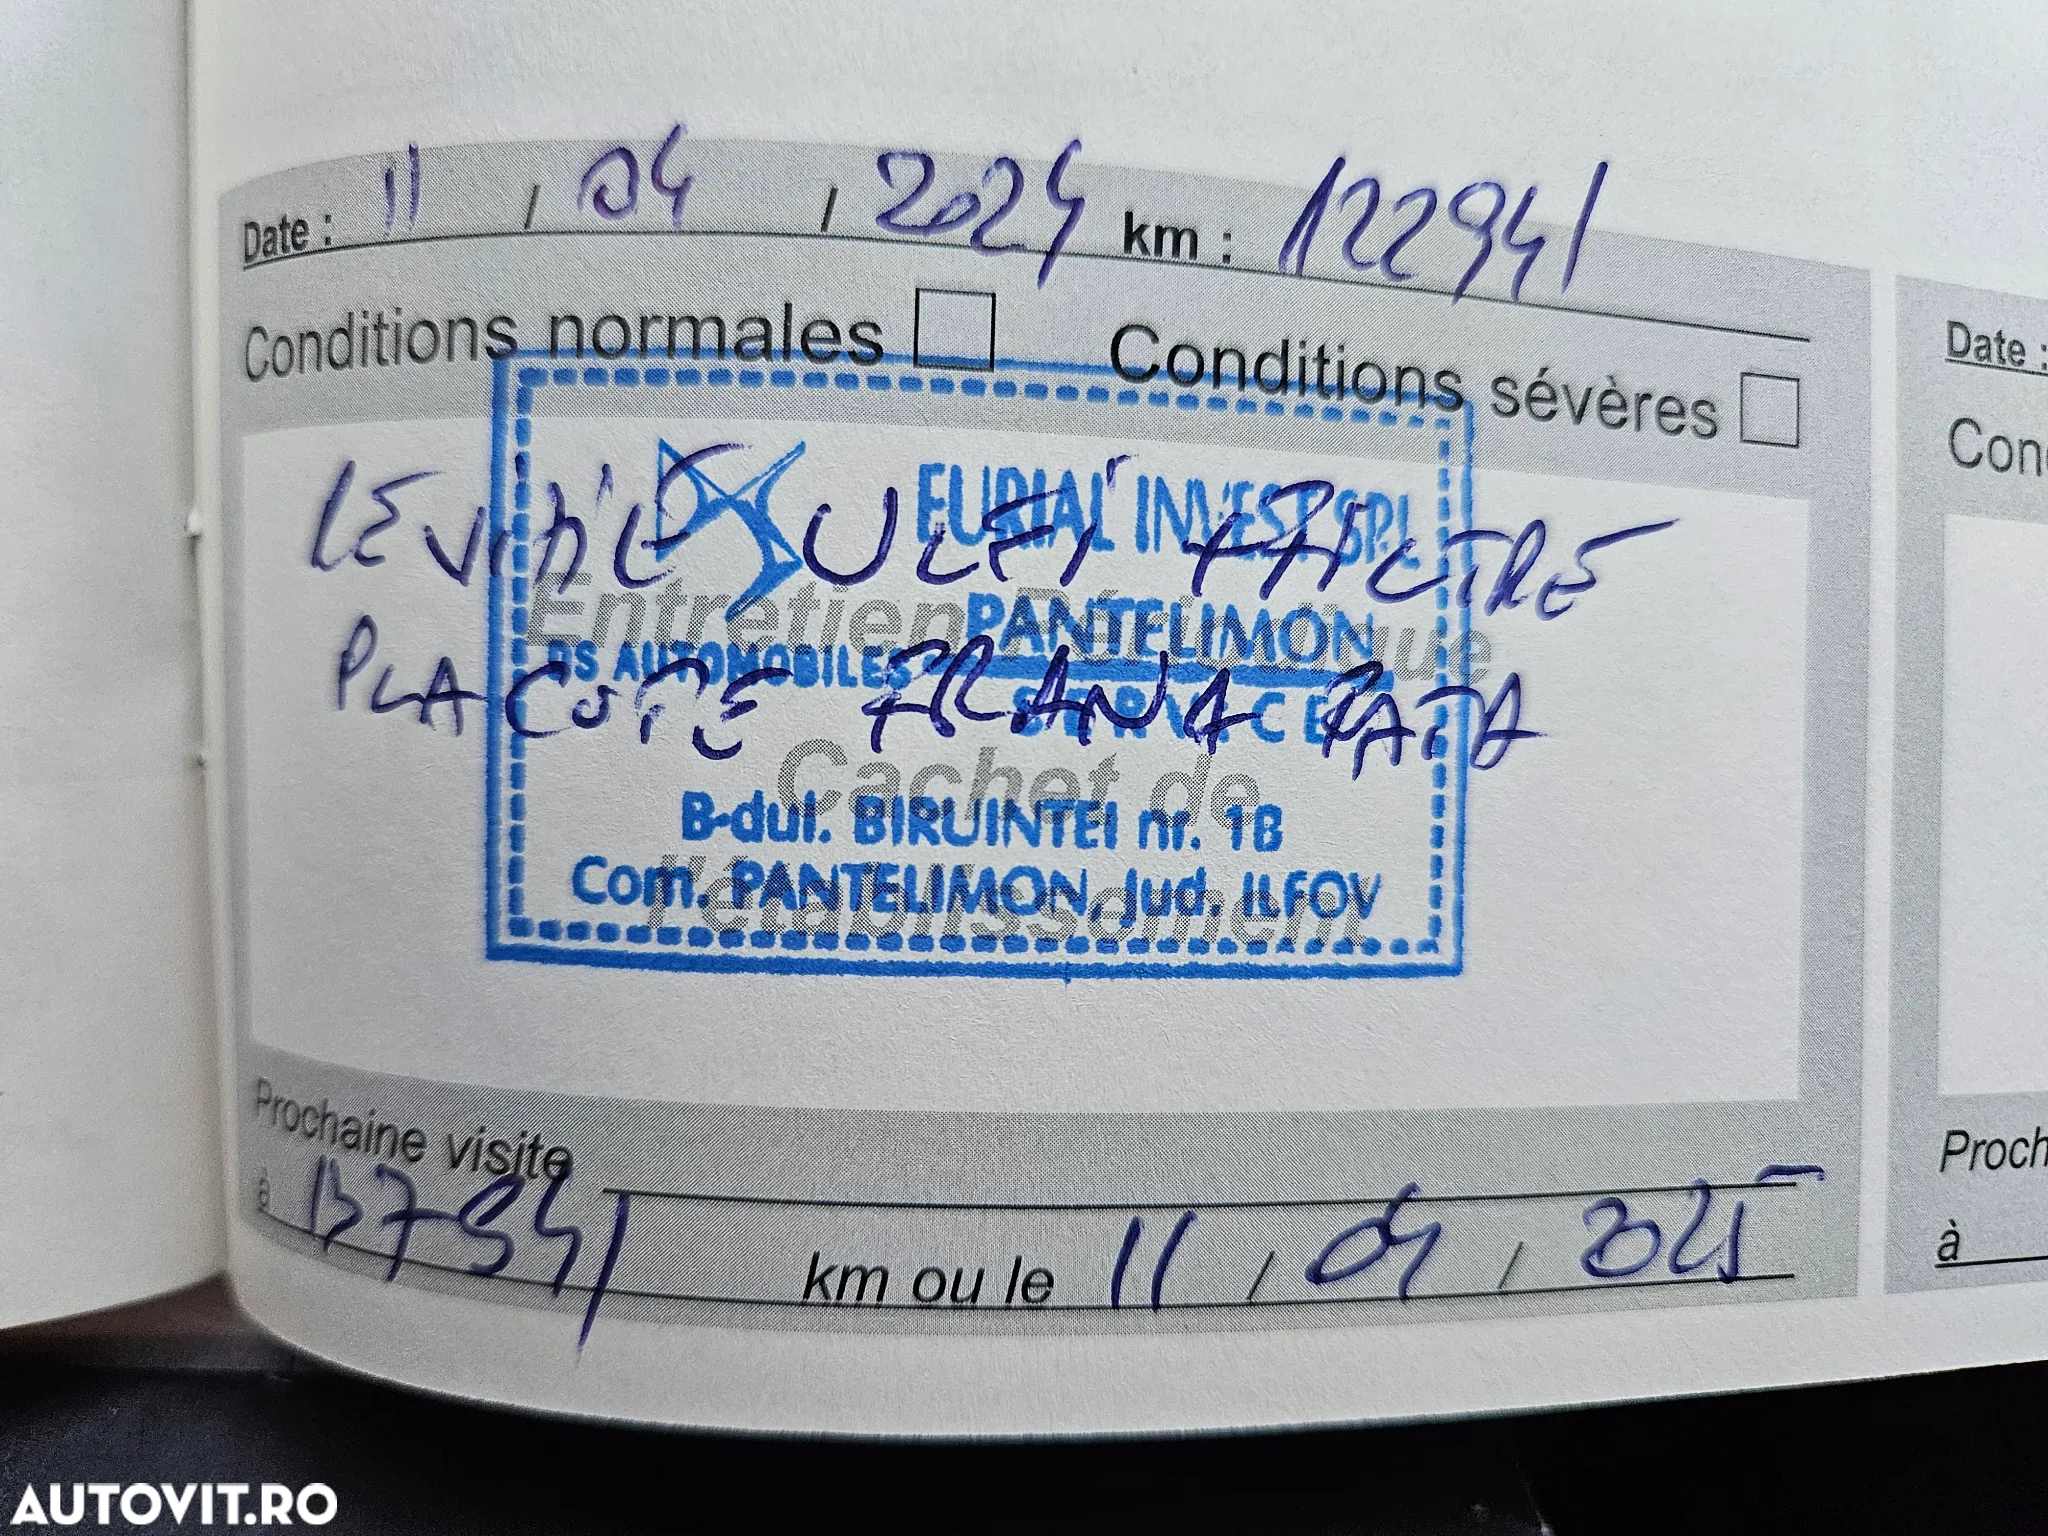 Date : 11 / 04 / 2024 km : 122941
Conditions normales Conditions sévères
REVIZIE ULEI + FILTRE
PLACUTE FRANA FATA
DS AUTOMOBILES
EURIAL INVEST SRL
PANTELIMON
SERVICE
B-dul. BIRUINTEI nr. 1B
Com. PANTELIMON, Jud. ILFOV
Entretien Périodique
Cachet de
l'établissement
Prochaine visite
à 137941 km ou le 11 / 04 / 2025
Date :
Con
Proch
à
AUTOVIT.RO